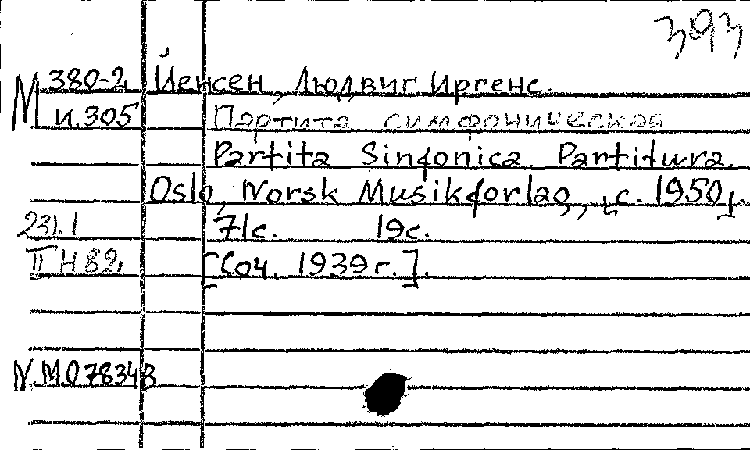 393
М 380-2 Йенсен, Людвиг Иргенс.
и.305 Партита симфоническая
Partita Sinfonica. Partitura.
Oslo, Norsk Musikforlag, [c. 1950].
231.1 71с. 19с.
II Н 82, [Соч. 1939 г.].
N.M.078348